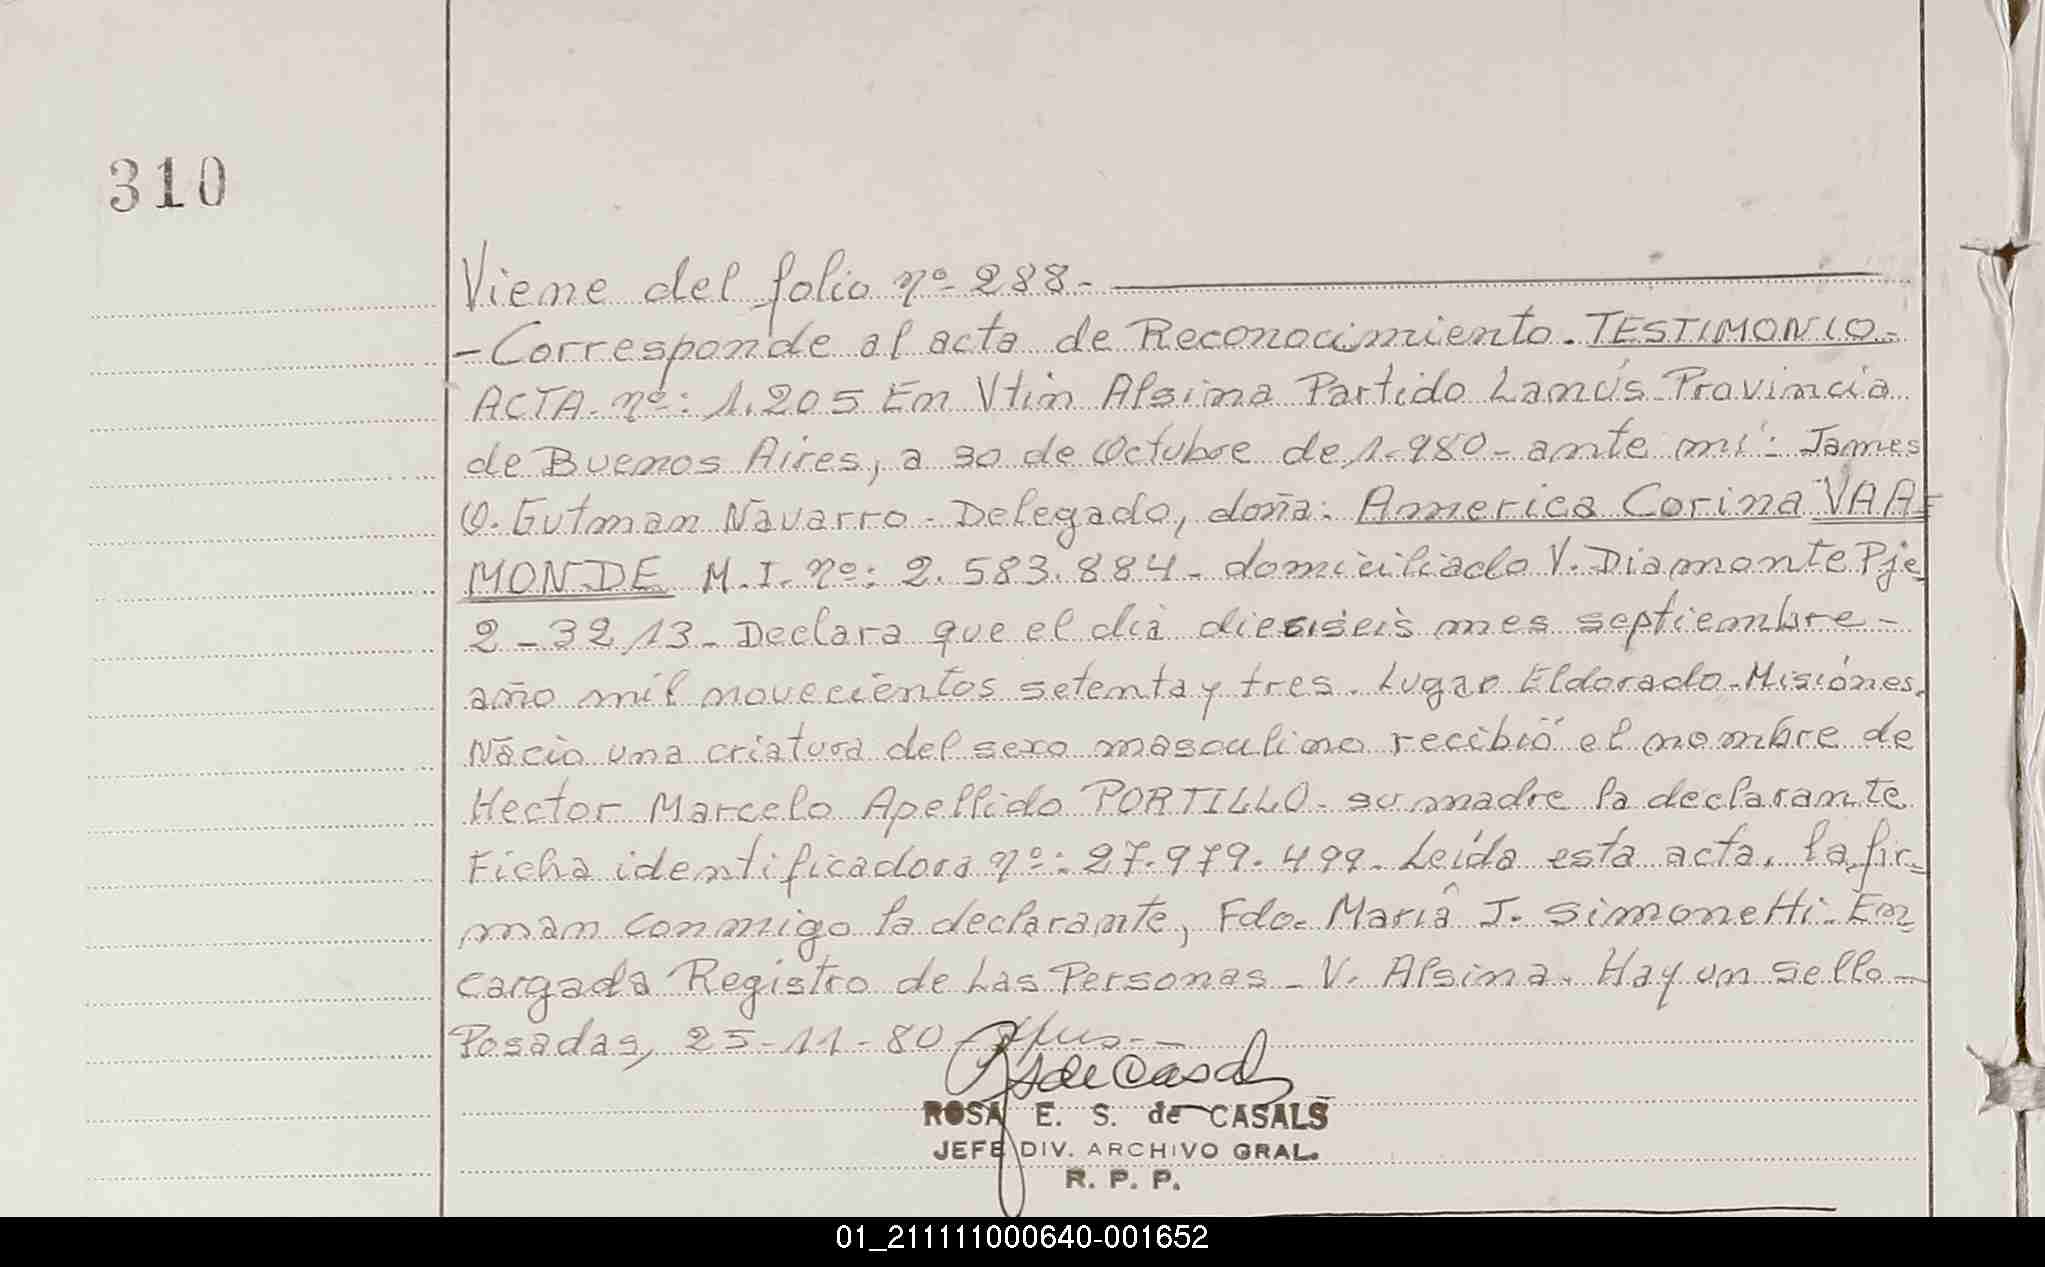 310
Viene del folio nº 288.-
- Corresponde al acta de Reconocimiento. TESTIMONIO.-
ACTA. nº: 1.205 En Vtin Alsina Partido Lanús. Provincia
de Buenos Aires, a 30 de Octubre de 1.980 - ante mi: James
O. Gutman Navarro - Delegado, doña: America Corina VAA-
MONDE M.I. nº: 2.583.884 - domiciliado V. Diamante Pje
2 - 3213 - Declara que el dia dieciseis mes septiembre -
año mil novecientos setenta y tres. Lugar Eldorado - Misiones.
Nació una criatura del sexo masculino recibió el nombre de
Hector Marcelo Apellido PORTILLO - su madre la declarante
Ficha identificadora nº: 27.979.499 - Leída esta acta, la fir-
man conmigo la declarante, Fdo. Maria J. Simonetti - En-
cargada Registro de Las Personas - V. Alsina. Hay un sello -
Posadas, 25-11-80
ROSA E. S. de CASALS
JEFE DIV. ARCHIVO GRAL.
R. P. P.
01_211111000640-001652